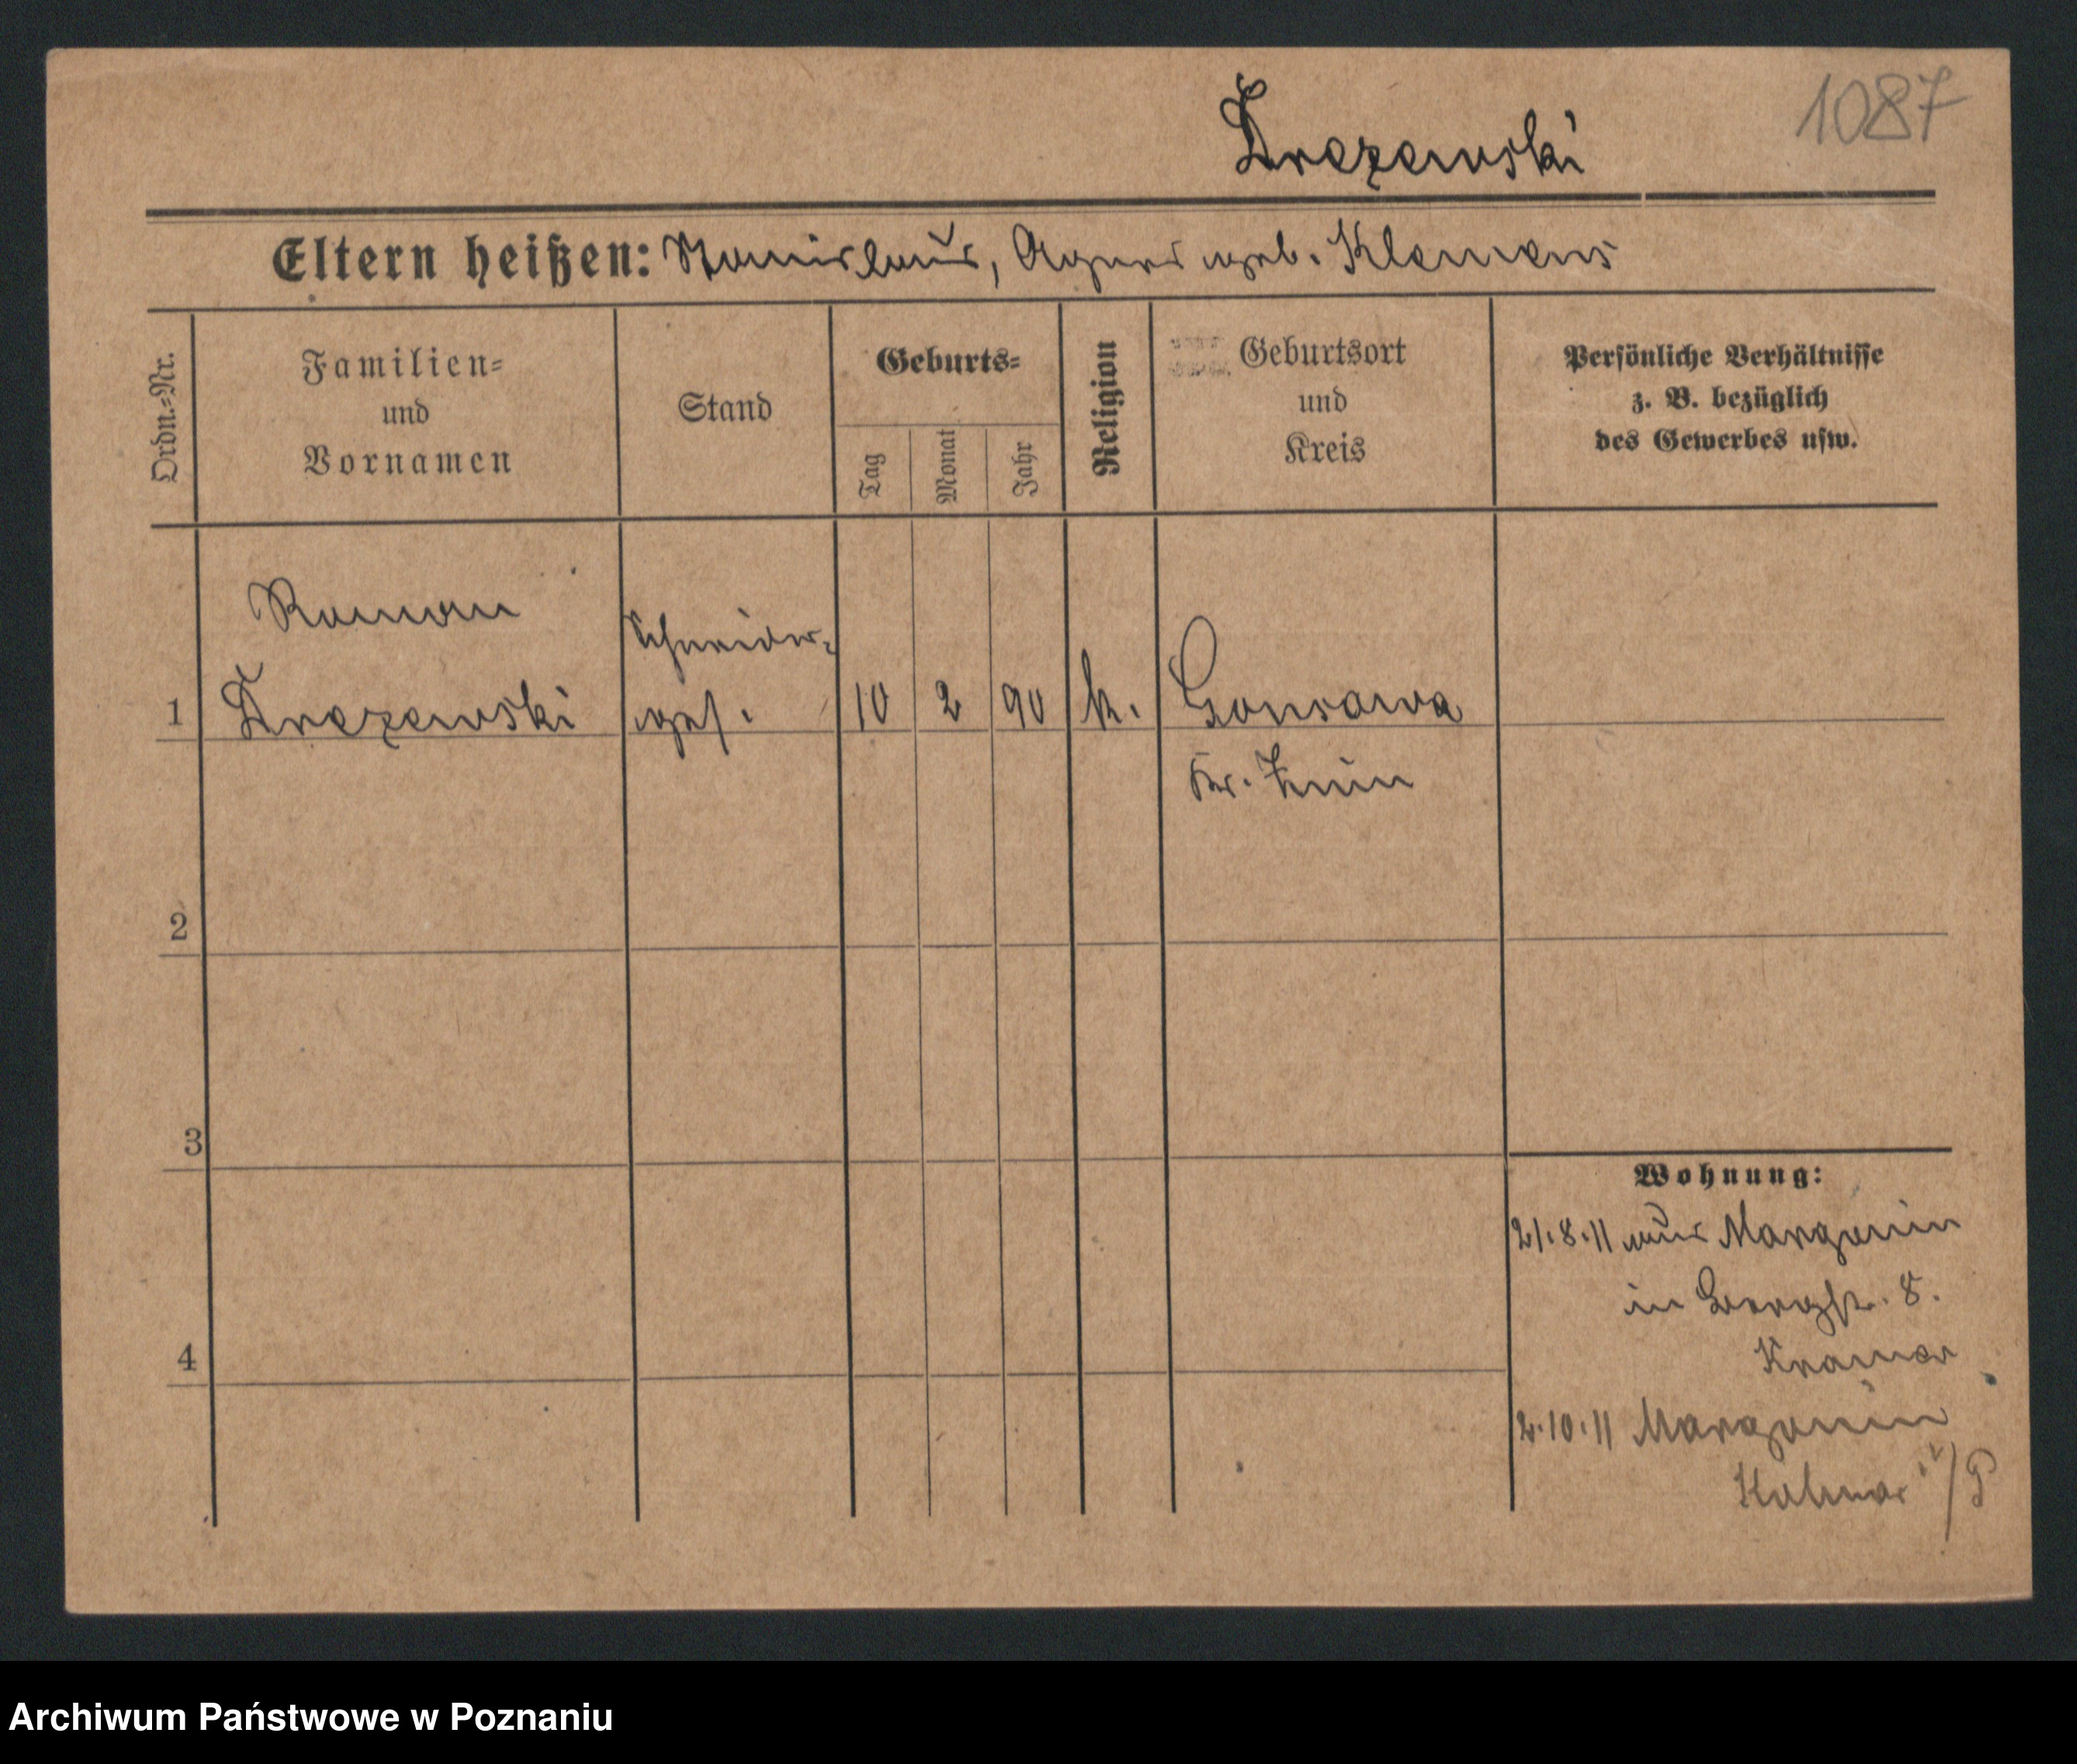 1087
Drezewski
Eltern heißen: Stanislaus, Agnes geb. Klemens
Ordn.-Nr.
Familien-
und
Vornamen
Stand
Geburts-
Tag
Monat
Jahr
Religion
Geburtsort
und
Kreis
Persönliche Verhältnisse
z. B. bezüglich
des Gewerbes usw.
Roman
Schneider-
1 Drezewski ges. 10 2 90 k. Gonsawa
Kr. Znin
2
3
4
Wohnung:
21.8.11 aus Margonin
in Bergstr. 8.
Kramer
2.10.11 Margonin
Kolmar i/P
Archiwum Państwowe w Poznaniu